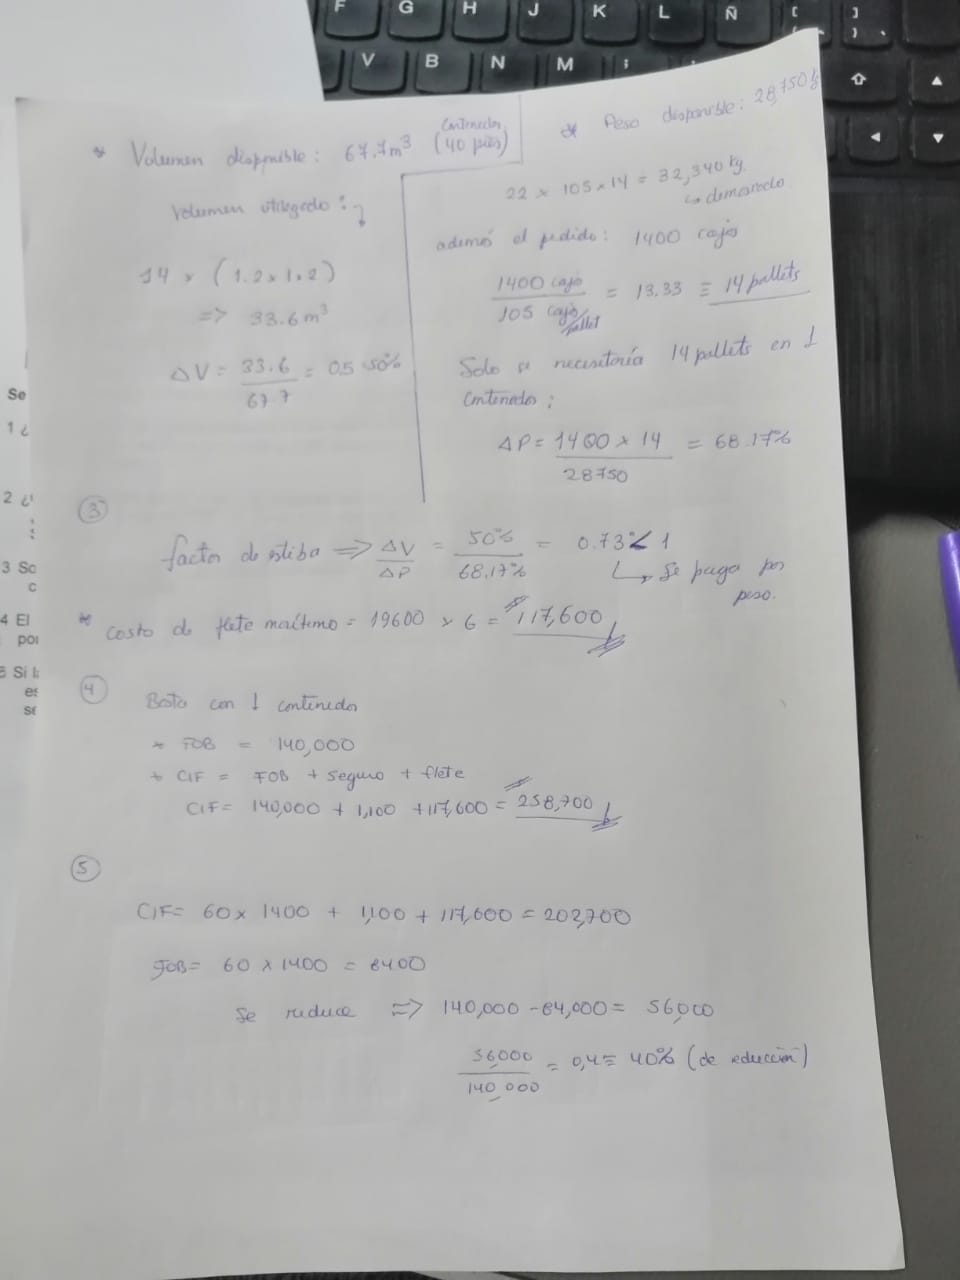 F G H J K L Ñ [ ]
V B N M ;
* Volumen disponible: 67.7m³ (Contenedor 40 pies)
Volumen utilizado:
14 x (1.2 x 1 x 2)
=> 33.6 m³
ΔV = 33.6 / 67.7 = 0.5 50%
* Peso disponible: 28,750 kg
22 x 105 x 14 = 32,340 kg.
↳ demasiado
además el pedido: 1400 cajas
1400 cajas / 105 cajas/pallet = 13.33 ≡ 14 pallets
Solo se necesitaría 14 pallets en 1
Contenedor:
ΔP = 1400 x 14 / 28750 = 68.17%
Se
1 ¿
2 ¿
3 So
c
4 El
por
5 Si la
es
se
③
factor de estiba => ΔV / ΔP = 50% / 68.17% = 0.73 < 1
↳ Se paga por
peso.
* Costo de flete marítimo = 19600 x 6 = $117,600
④
Basta con 1 contenedor
* FOB = 140,000
+ CIF = FOB + seguro + flete
CIF = 140,000 + 1,100 + 117,600 = $258,700
⑤
CIF = 60 x 1400 + 1,100 + 117,600 = 202,700
FOB = 60 x 1400 = 8400
Se reduce => 140,000 - 84,000 = 56,000
56,000 / 140,000 = 0,4 = 40% (de reducción)